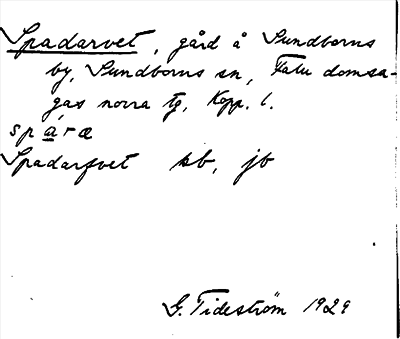 Spadarvet, gård å Sundborns
by, Sundborns sn, Falu domsa-
gas norra tg, Kopp. l.
sparæ
Spadarfvet kb, jb
G. Tideström 1929